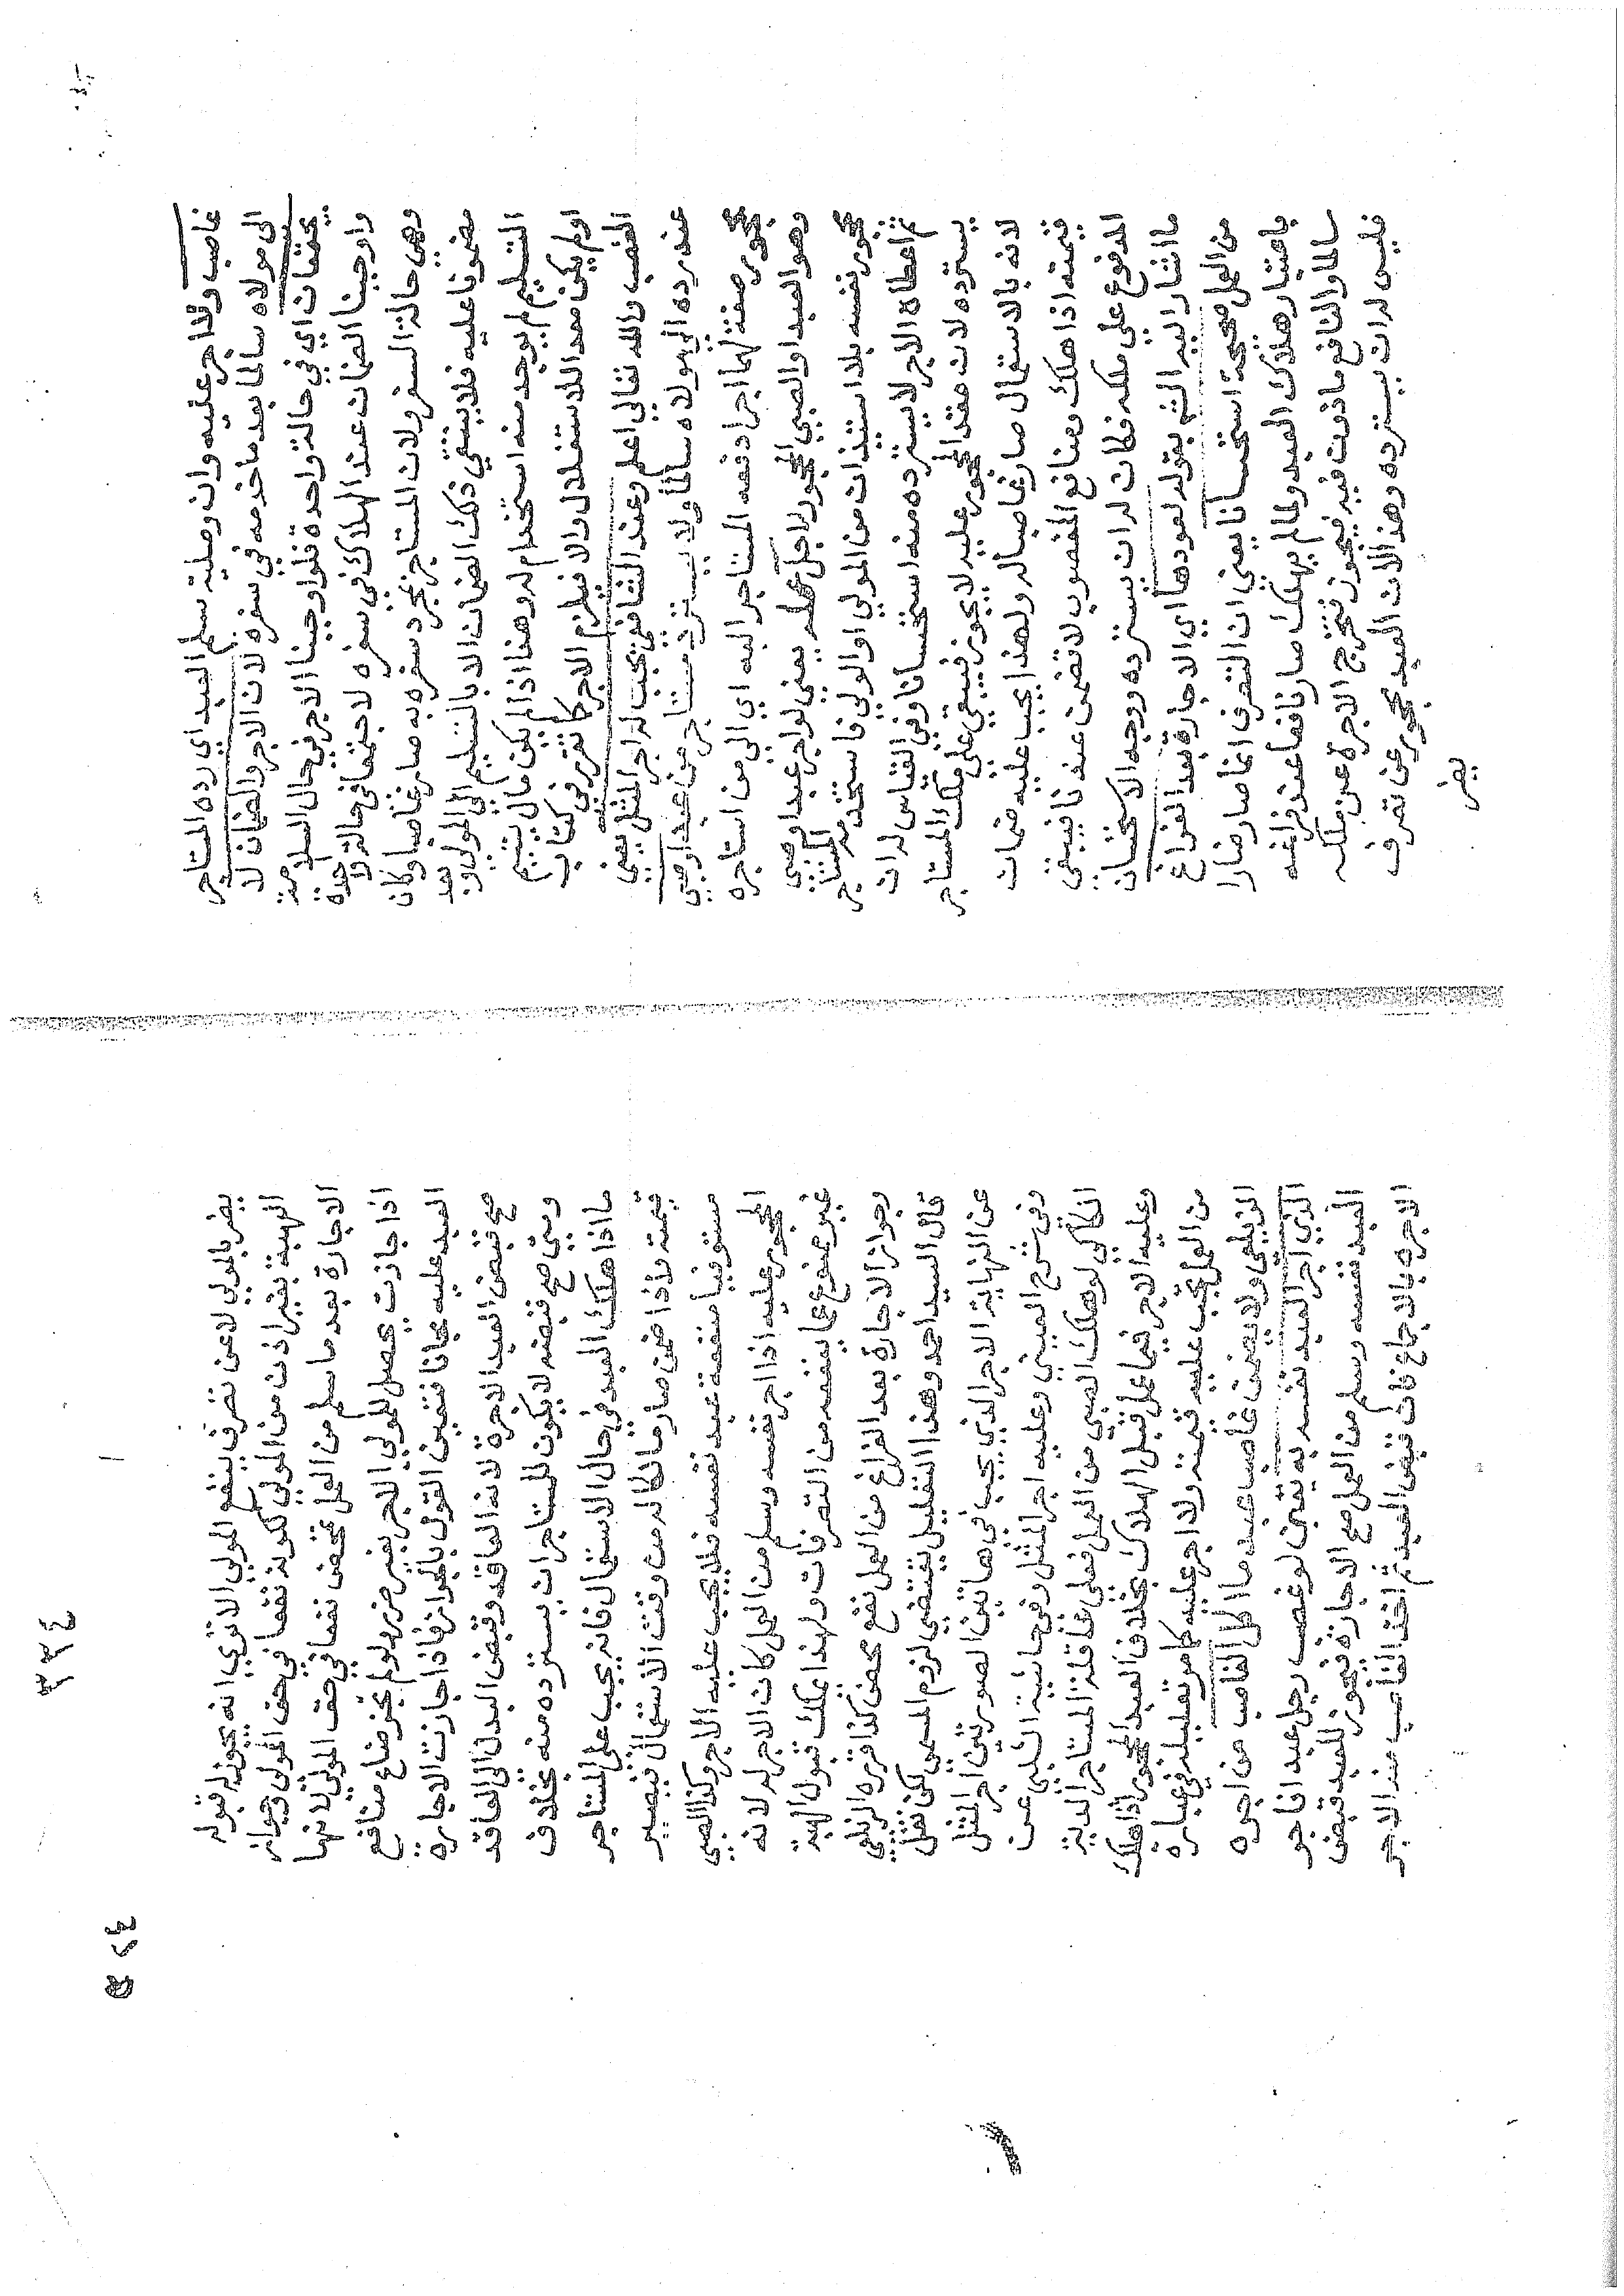 غاصب ولا اجر عليه وان وصلية سلم العبد اي رده المستاجر
الى مولاه سالما بعد ما خدمه في سفره لان الاجر والضمان لا
يجتمعان اي في حالة واحدة فلو اوجبنا الاجر في حال السلامة
واوجبنا الضمان عند الهلاك في سفره لاجتمعا في حالة واحدة
وهي حالة السفر ولان المستاجر بمجرد سفره به صار غاصبا وكان
مضمونا عليه فلا ينتفي ذلك الضمان الا بالتسليم الى المولى وبعد
التسليم لم يوجد منه استخدام له وهذا اذا لم يكن مال يتيم
اولم يكن معد اللاستغلال والا فيلزم الاجر كما تقرر في كتاب
الغصب والله تعالى اعلم وعند الشافعي يجب له اجر المثل يعني
عند رده الى مولاه سالما ولا يسترد مستاجر من عبد او صبي
محجور صفة لهما اجرا دفعه المستاجر اليه اي الى من استاجره
وهو العبد او الصبي المحجور لاجل عمله يعني لو اجر عبد او صبي
محجور نفسه بلا استيذان من المولى او الولي فاستخدمه المستاجر
ثم اعطاه الاجر لا يسترده منه استحسانا وفي القياس له ان
يسترده لان عقد المحجور عليه لا يجوز فيبقى على ملك المستاجر
لانه بالاستعمال صار غاصبا له ولهذا يجب عليه ضمان
قيمته اذا هلك ومنافع المغصوب لا تضمن عندنا فيبقى
المدفوع على ملكه فكان له ان يسترده ووجه الاستحسان
ما اشار اليه الشم بقوله لعودها اي الاجارة بعد الفراغ
من العمل صحيحة استحسانا يعني ان التصرف انما صار ضارا
باعتبار هلاك العبد ولما لم يهلك صار نافعا عند فراغه
سالما والنافع ماذون فيه فيجوز فتخرج الاجرة عن ملكه
فليس له ان يسترده وهذا لان العبد محجور عن تصرف
يضر
٤٣٣
يضر بالمولى لا عن تصرف ينفع المولى الا ترى انه يجوز له قبول
الهبة بغير اذن من المولى لكونه نفعا في حق المولى وجواز
الاجارة بعد ما سلم من العمل تمحض نفعا في حق المولى لانها
اذا جازت يحصل للمولى الاجر بغير ضرر ولو لم يجز ضاع منافع
العبد عليه مجانا فتعين القول بالجواز فاذا جازت الاجارة
صح قبض العبد الاجرة لانه العاقد وقبض البدل الى العاقد
ومتى صح قبضه لا يكون للمستاجر ان يسترده منه بخلاف
ما اذا هلك العبد في حال الاستعمال فانه يجب على المستاجر
قيمته واذا ضمن صار مالكا له من وقت الاستعمال فيصير
مستوفيا منفعة عبد نفسه فلا يجب عليه الاجر وكذا الصبي
المحجور عليه اذا اجر نفسه وسلم من العمل كان الاجر له لانه
غير ممنوع عما ينفعه من التصرفات ولهذا يملك قبول الهبة
وجواز الاجارة بعد الفراغ من العمل نفع محض كذا قرره الزيلعي
قال السيد احمد وهذا التعليل يقتضي لزوم المسمى لكن نقل
عن النهاية الاجر الذي يجب في هاتين الصورتين اجر المثل
وفي شرح العيني وعليه اجر المثل وفي حاشية الشلبي عن
الكاكي لو هلك الصبي من العمل فعلى عاقلة المستاجر الدية
وعليه الاجر فيما عمل قبل الهلاك بخلاف العبد المحجور اذا هلك
من العمل تجب عليه قيمته ولا اجر عليه كما مر تعليله في عبارة
الزيلعي ولا يضمن غاصب عبد ما اكل الغاصب من اجره
الذي اجر العبد نفسه به يعني لو غصب رجل عبدا فاجر
العبد نفسه وسلم من العمل صح الاجارة فيجوز للعبد قبض
الاجره بالاجماع فان قبض العبد ثم اخذ الغاصب منه الاجر